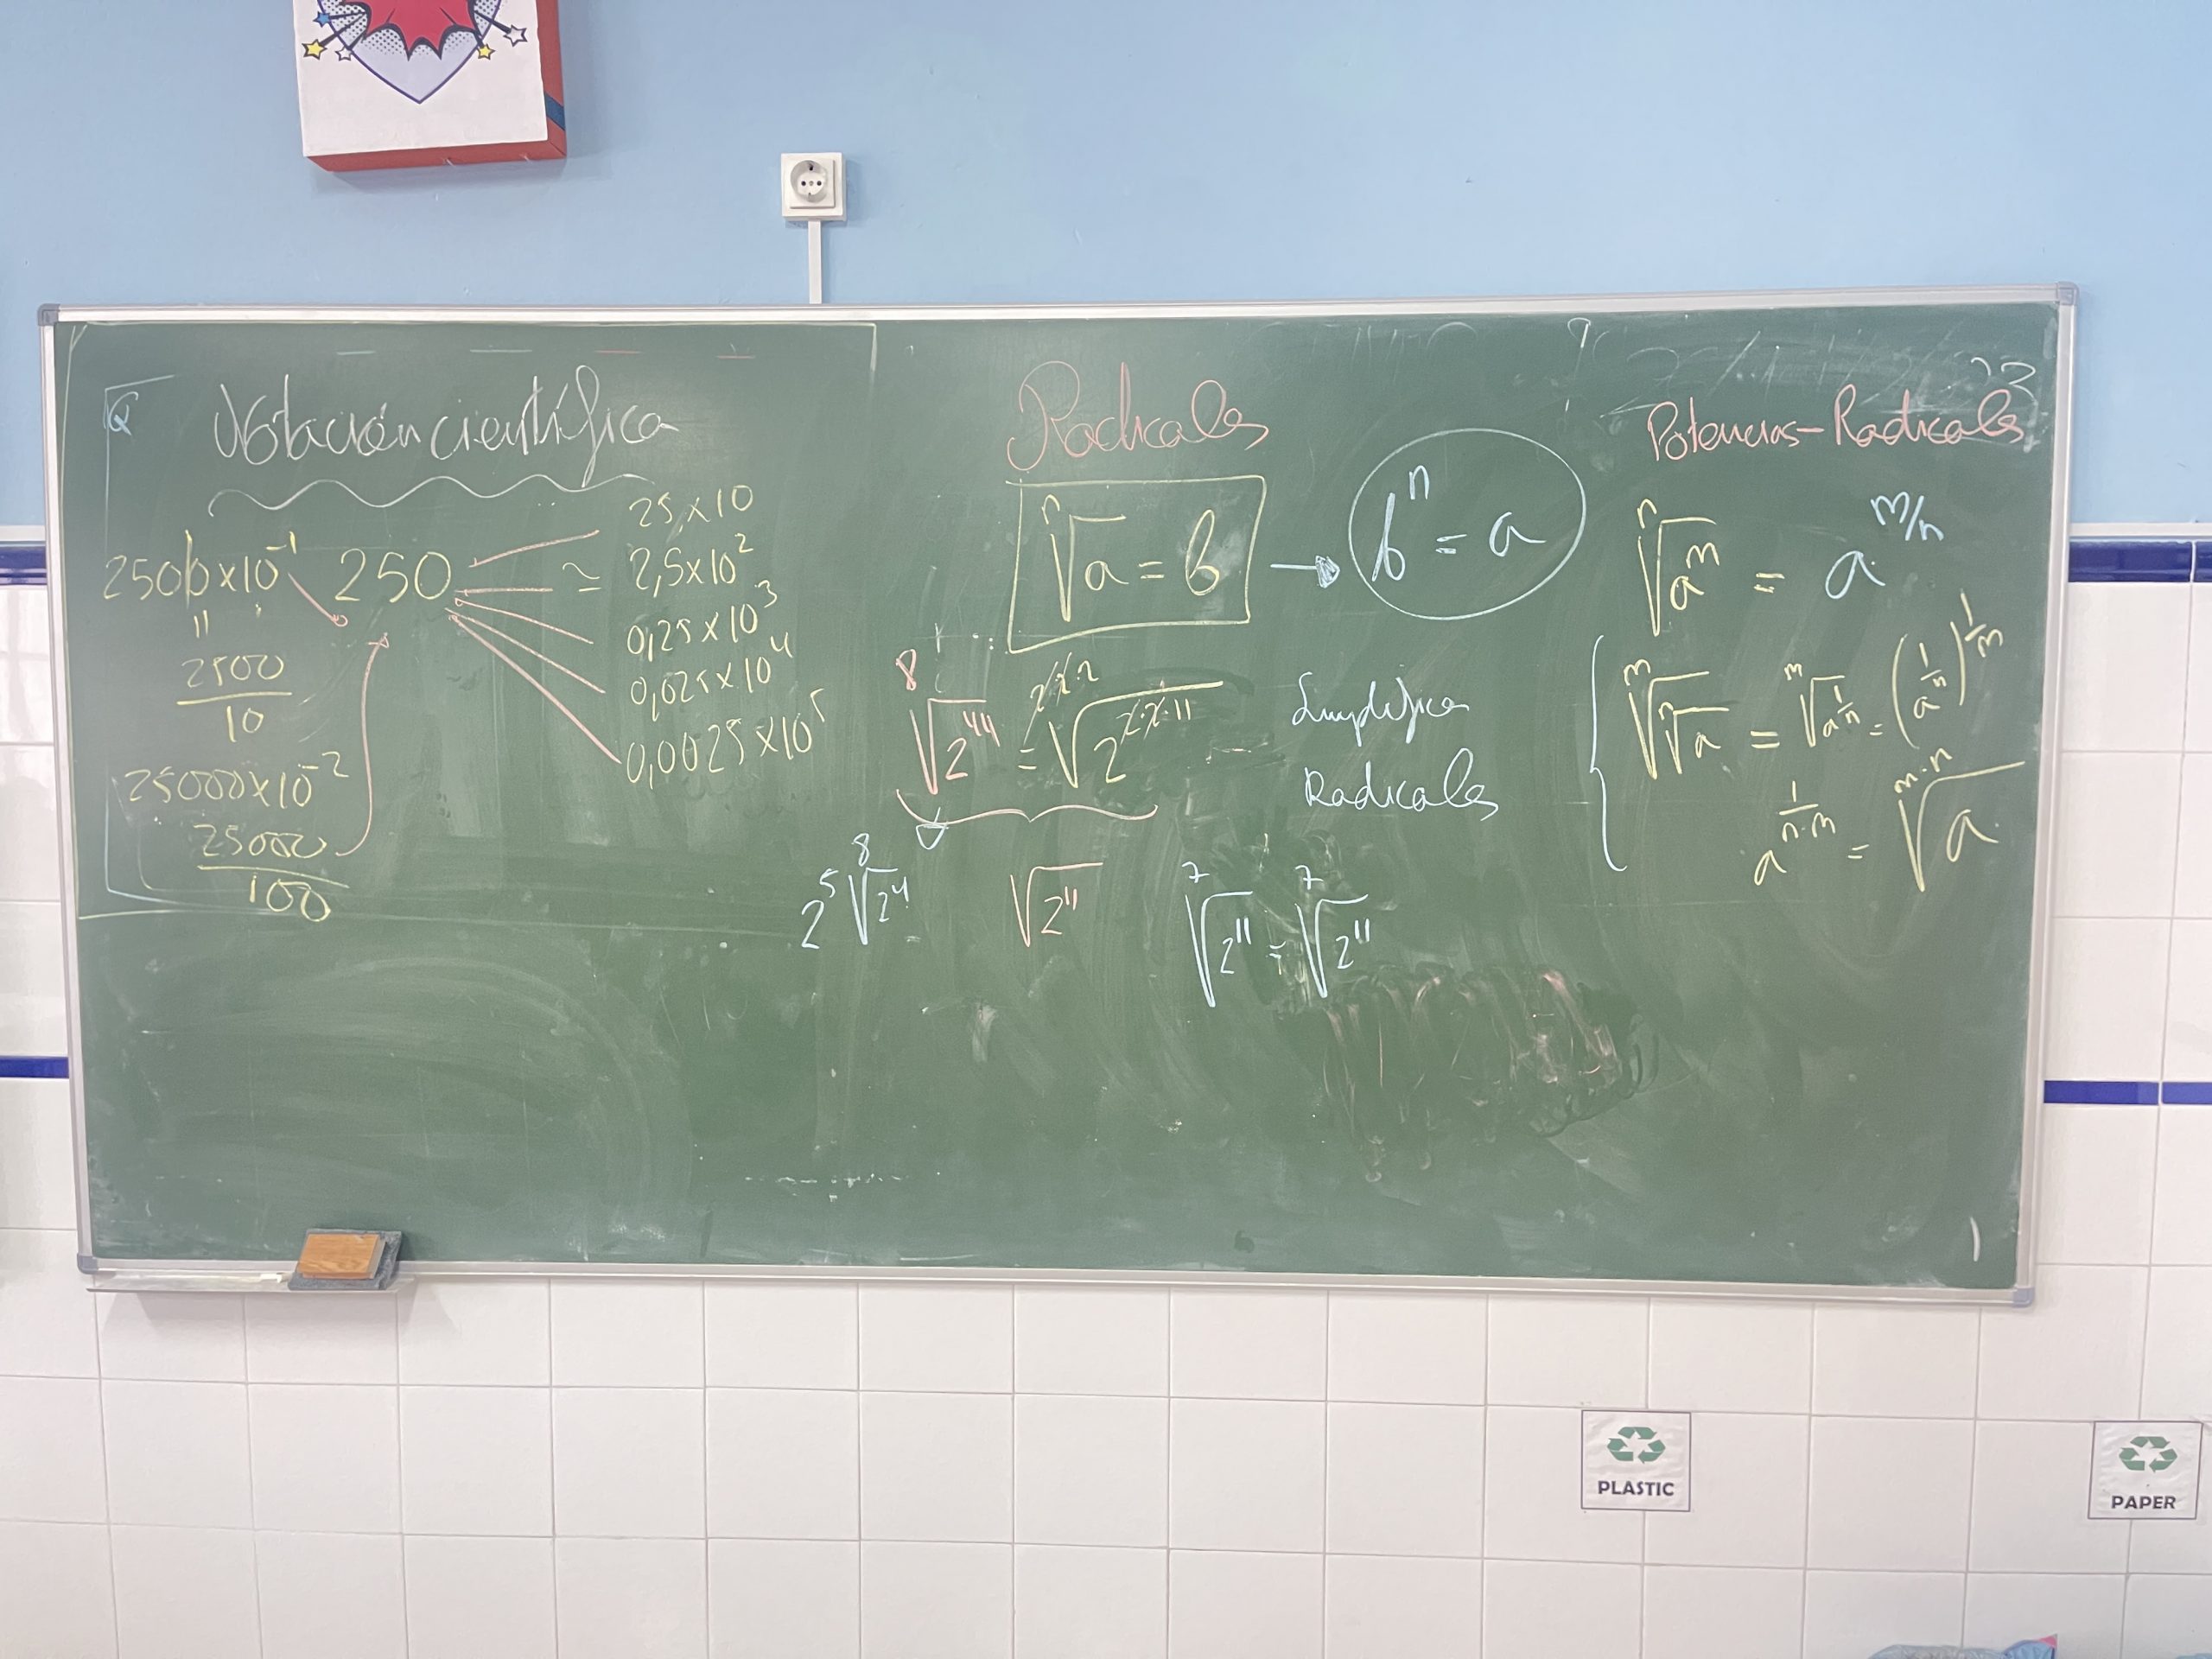 Notación científica
2500x10⁻¹
250
≃
25x10
2,5x10²
0,25x10³
0,025x10⁴
0,0025x10⁵
=
2500/10
25000x10⁻²
25000/100
Radicales
ⁿ√a = b → bⁿ = a
⁸√2⁴⁴ = ²·²·²√2²·²·¹¹
Simplifica
Radicales
2⁵ ⁸√2⁴
√2¹¹
⁷√2¹¹ = ⁷√2¹¹
Potencias-Radicales
ⁿ√aᵐ = a^(m/n)
ᵐ√ⁿ√a = ᵐ√a^(1/n) = (a^(1/n))^(1/m)
a^(1/(n·m)) = ᵐ·ⁿ√a
PLASTIC
PAPER